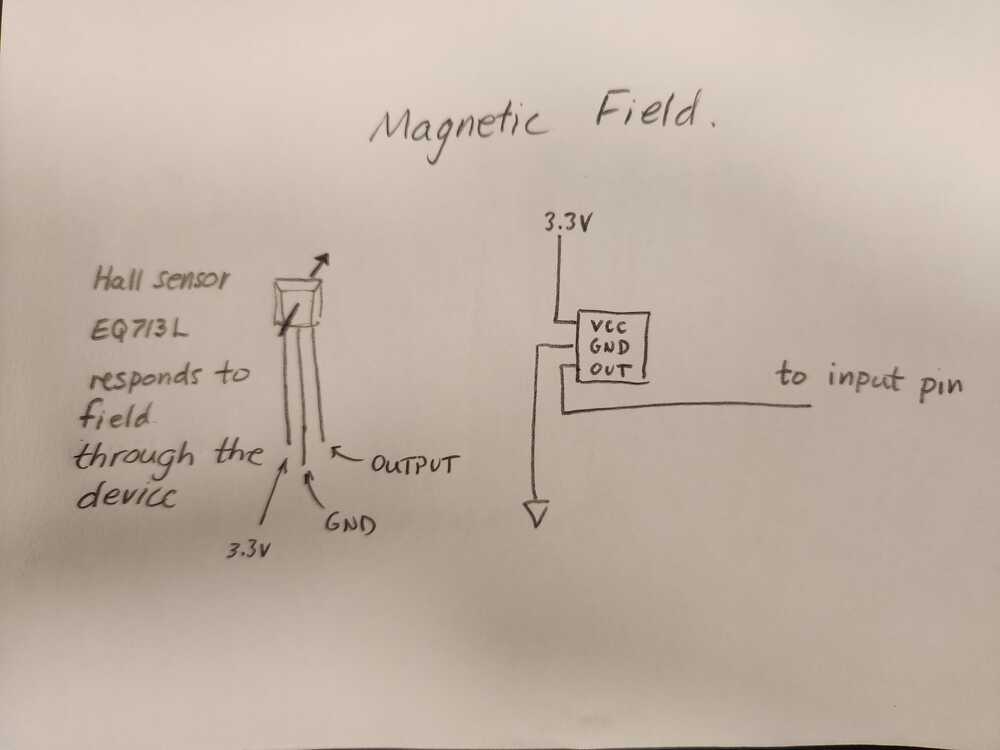 Magnetic Field.
Hall sensor
EQ713L
responds to
field
through the
device
3.3V
GND
OUTPUT
3.3V
VCC
GND
OUT
to input pin